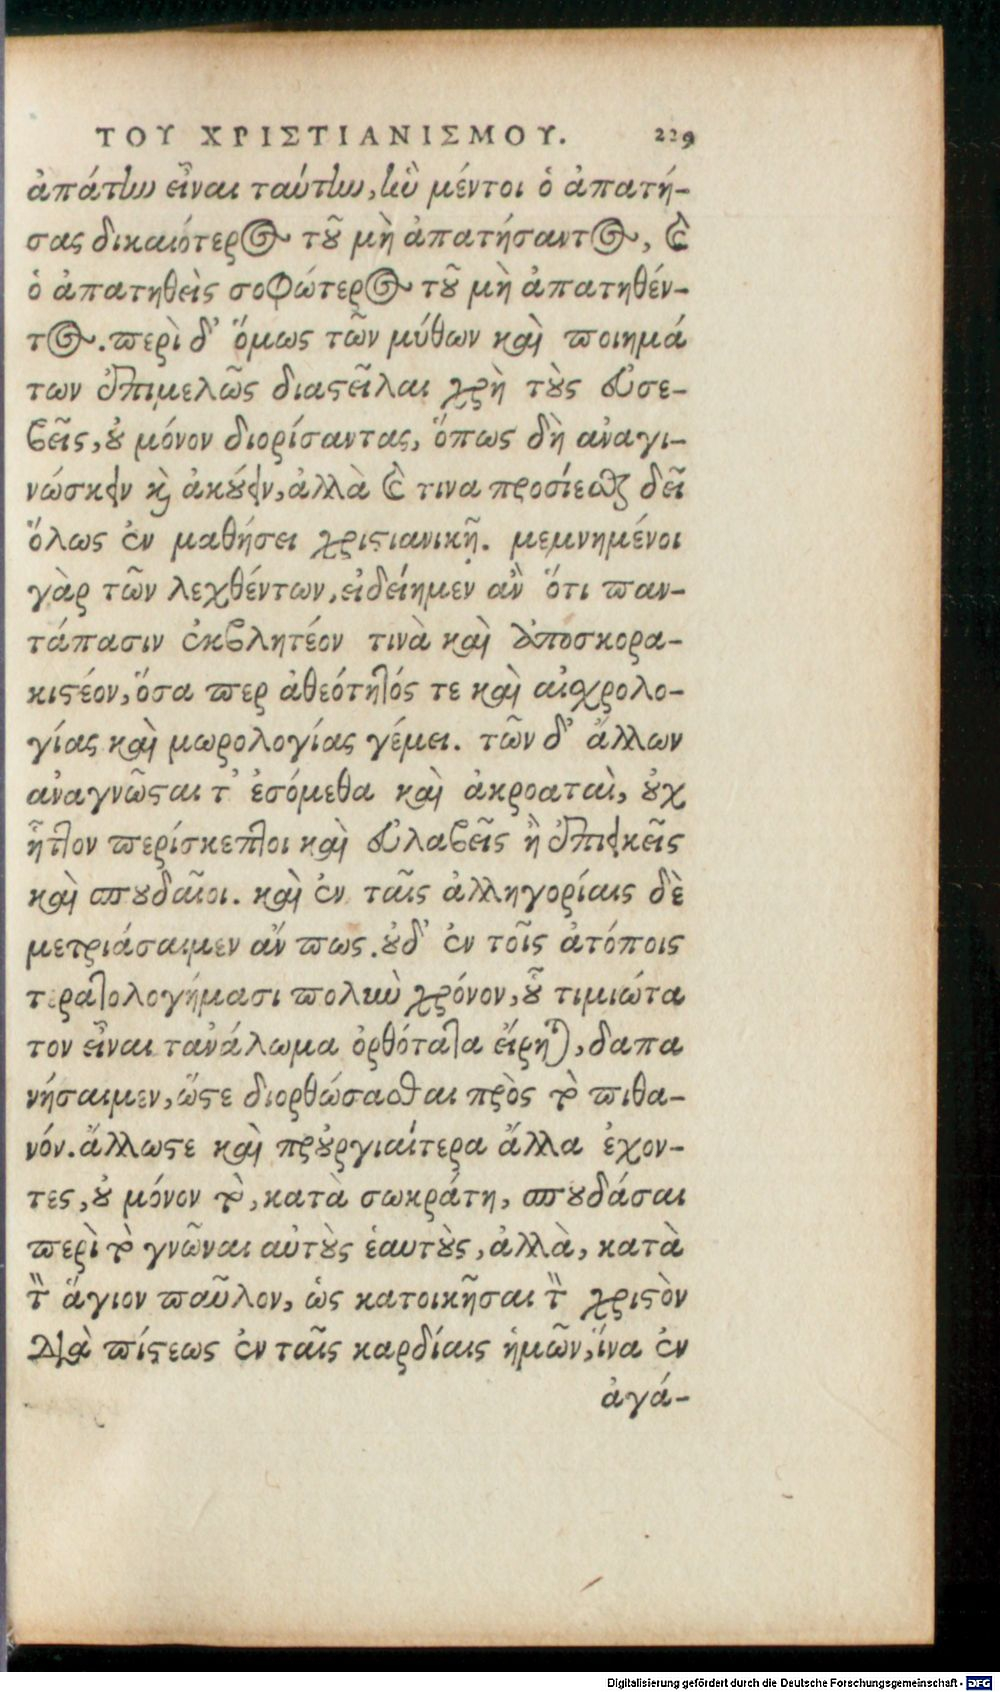 ΤΟΥ ΧΡΙΣΤΙΑΝΙΣΜΟΥ. 229
ἀπάτην εἶναι ταύτην, ἣν μέντοι ὁ ἀπατή-
σας δικαιότερος τοῦ μὴ ἀπατήσαντος, καὶ
ὁ ἀπατηθεὶς σοφώτερος τοῦ μὴ ἀπατηθέν-
τος. περὶ δ’ ὅμως τῶν μύθων καὶ ποιημά
των ἐπιμελῶς διαστεῖλαι χρὴ τοὺς εὐσε-
βεῖς, οὐ μόνον διορίσαντας, ὅπως δὴ ἀναγι-
νώσκειν καὶ ἀκούειν, ἀλλὰ καὶ τινα προσίεσθαι δεῖ
ὅλως ἐν μαθήσει χριστιανικῇ. μεμνημένοι
γὰρ τῶν λεχθέντων, εἰδείημεν ἂν ὅτι παν-
τάπασιν ἐκβλητέον τινὰ καὶ ἀποσκορα-
κιστέον, ὅσα περ ἀθεότητός τε καὶ αἰσχρολο-
γίας καὶ μωρολογίας γέμει. τῶν δ’ ἄλλων
ἀναγνῶσταί τ’ ἐσόμεθα καὶ ἀκροαταὶ, οὐχ
ἧττον περίσκεπτοι καὶ εὐλαβεῖς ἢ ἐπιεικεῖς
καὶ σπουδαῖοι. καὶ ἐν ταῖς ἀλληγορίαις δὲ
μετριάσαιμεν ἄν πως. οὐδ’ ἐν τοῖς ἀτόποις
τερατολογήμασι πολὺν χρόνον, οὗ τιμιώτα
τον εἶναι τἀνάλωμα ὀρθότατα εἴρηται, δαπα
νήσαιμεν, ὥστε διορθώσασθαι πρὸς τὸ πιθα-
νόν. ἄλλωστε καὶ προὐργιαίτερα ἄλλα ἔχον-
τες, οὐ μόνον τὸ, κατὰ σωκράτη, σπουδάσαι
περὶ τὸ γνῶναι αὐτοὺς ἑαυτοὺς, ἀλλὰ, κατὰ
τὸν ἅγιον παῦλον, ὡς κατοικῆσαι τὸν χριστὸν
διὰ πίστεως ἐν ταῖς καρδίαις ἡμῶν, ἵνα ἐν
ἀγά-
Digitalisierung gefördert durch die Deutsche Forschungsgemeinschaft - DFG